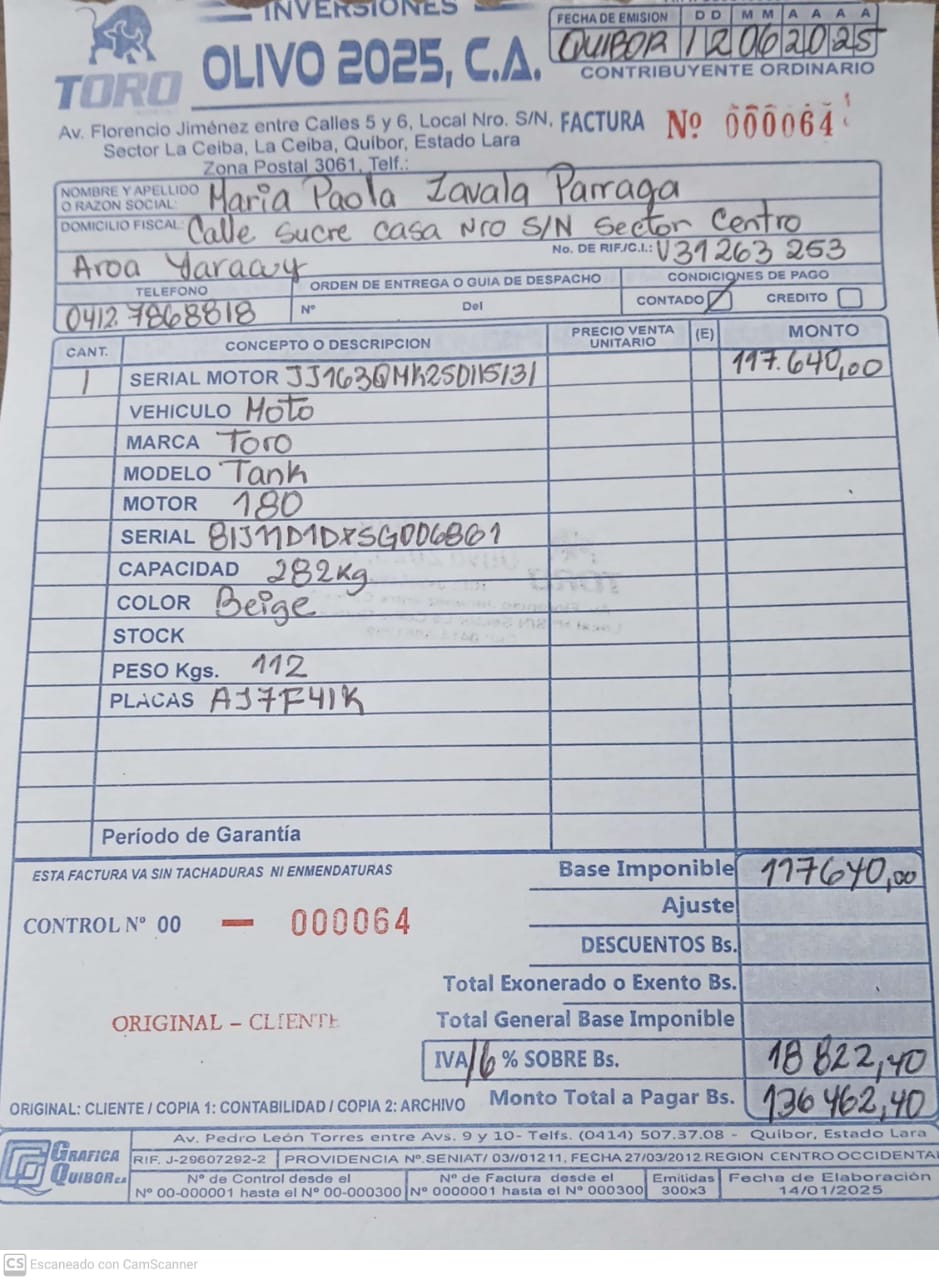 INVERSIONES
TORO OLIVO 2025, C.A.
FECHA DE EMISION D D M M A A A A
QUIBOR 12 06 2025
CONTRIBUYENTE ORDINARIO
Av. Florencio Jiménez entre Calles 5 y 6, Local Nro. S/N,
Sector La Ceiba, La Ceiba, Quíbor, Estado Lara
Zona Postal 3061, Telf.:
FACTURA Nº 000064
NOMBRE Y APELLIDO O RAZON SOCIAL: Maria Paola Zavala Parraga
DOMICILIO FISCAL: Calle Sucre casa Nro S/N Sector Centro
Aroa Yaracuy No. DE RIF./C.I.: V31263253
TELEFONO ORDEN DE ENTREGA O GUIA DE DESPACHO CONDICIONES DE PAGO
0412.7868818 Nº Del CONTADO CREDITO
CANT. CONCEPTO O DESCRIPCION PRECIO VENTA UNITARIO (E) MONTO
1 SERIAL MOTOR JJ163QMK25D115131 117.640,00
VEHICULO Moto
MARCA Toro
MODELO Tank
MOTOR 180
SERIAL
CAPACIDAD 282Kg
COLOR Beige
STOCK
PESO Kgs. 112
PLACAS AJ7F41K
Período de Garantía
ESTA FACTURA VA SIN TACHADURAS NI ENMENDATURAS
Base Imponible 117640,00
Ajuste
CONTROL Nº 00 – 000064
DESCUENTOS Bs.
Total Exonerado o Exento Bs.
ORIGINAL – CLIENTE
Total General Base Imponible
IVA 16 % SOBRE Bs. 18822,40
ORIGINAL: CLIENTE / COPIA 1: CONTABILIDAD / COPIA 2: ARCHIVO
Monto Total a Pagar Bs. 136462,40
GRAFICA QUIBOR C.A.
Av. Pedro León Torres entre Avs. 9 y 10- Telfs. (0414) 507.37.08 - Quibor, Estado Lara
RIF. J-29607292-2 PROVIDENCIA Nº.SENIAT/ 03//01211, FECHA 27/03/2012 REGION CENTROOCCIDENTAL
Nº de Control desde el Nº de Factura desde el Emitidas Fecha de Elaboración
Nº 00-000001 hasta el Nº 00-000300 Nº 0000001 hasta el Nº 000300 300x3 14/01/2025
CS Escaneado con CamScanner